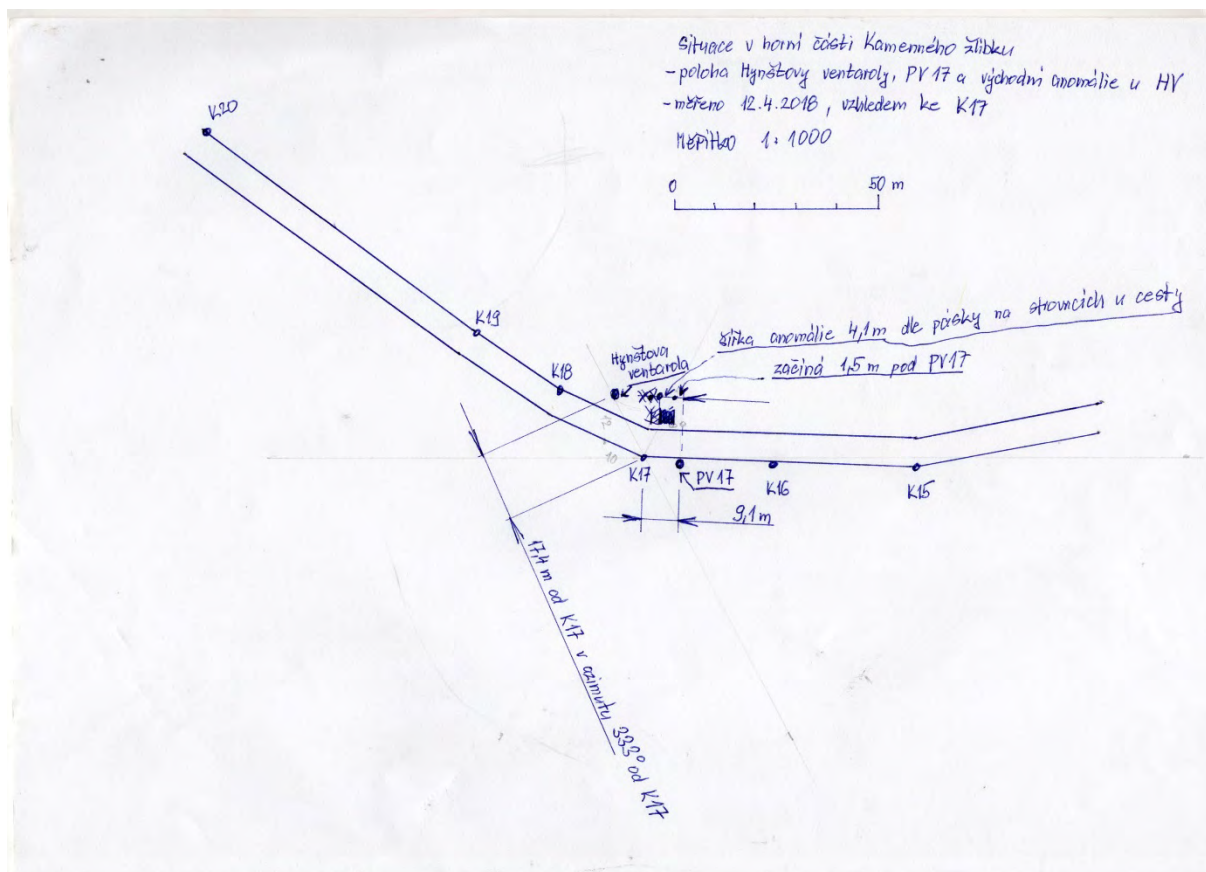 Situace v horní části Kamenného žlíbku
- poloha Hynštovy ventaroly, PV 17 a východní anomálie u HV
- měřeno 12.4.2018, vzhledem ke K17
Měřítko 1:1000
0 50 m
K20
K19
K18
Hynštova
ventarola
šířka anomálie 4,1m dle pásky na stromcích u cesty
začíná 1,5 m pod PV17
K17
PV17
K16
K15
9,1m
17,4 m od K17 v azimutu 333° od K17